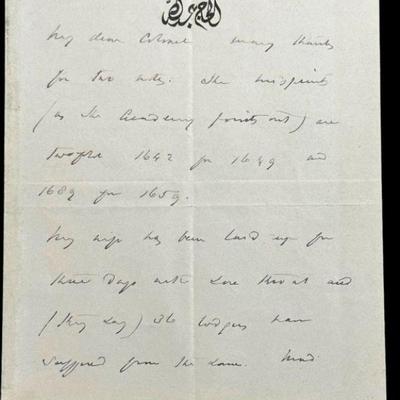 الحاج عبدالله
My dear Colonel many thanks
for two notes. The misprints
(as the Academy points out) are
twofold 1642 for 1649 and
1689 for 1659.
My wife has been laid up for
three days with sore throat and
(they say) 36 lodgers have
suffered from the same. Mind